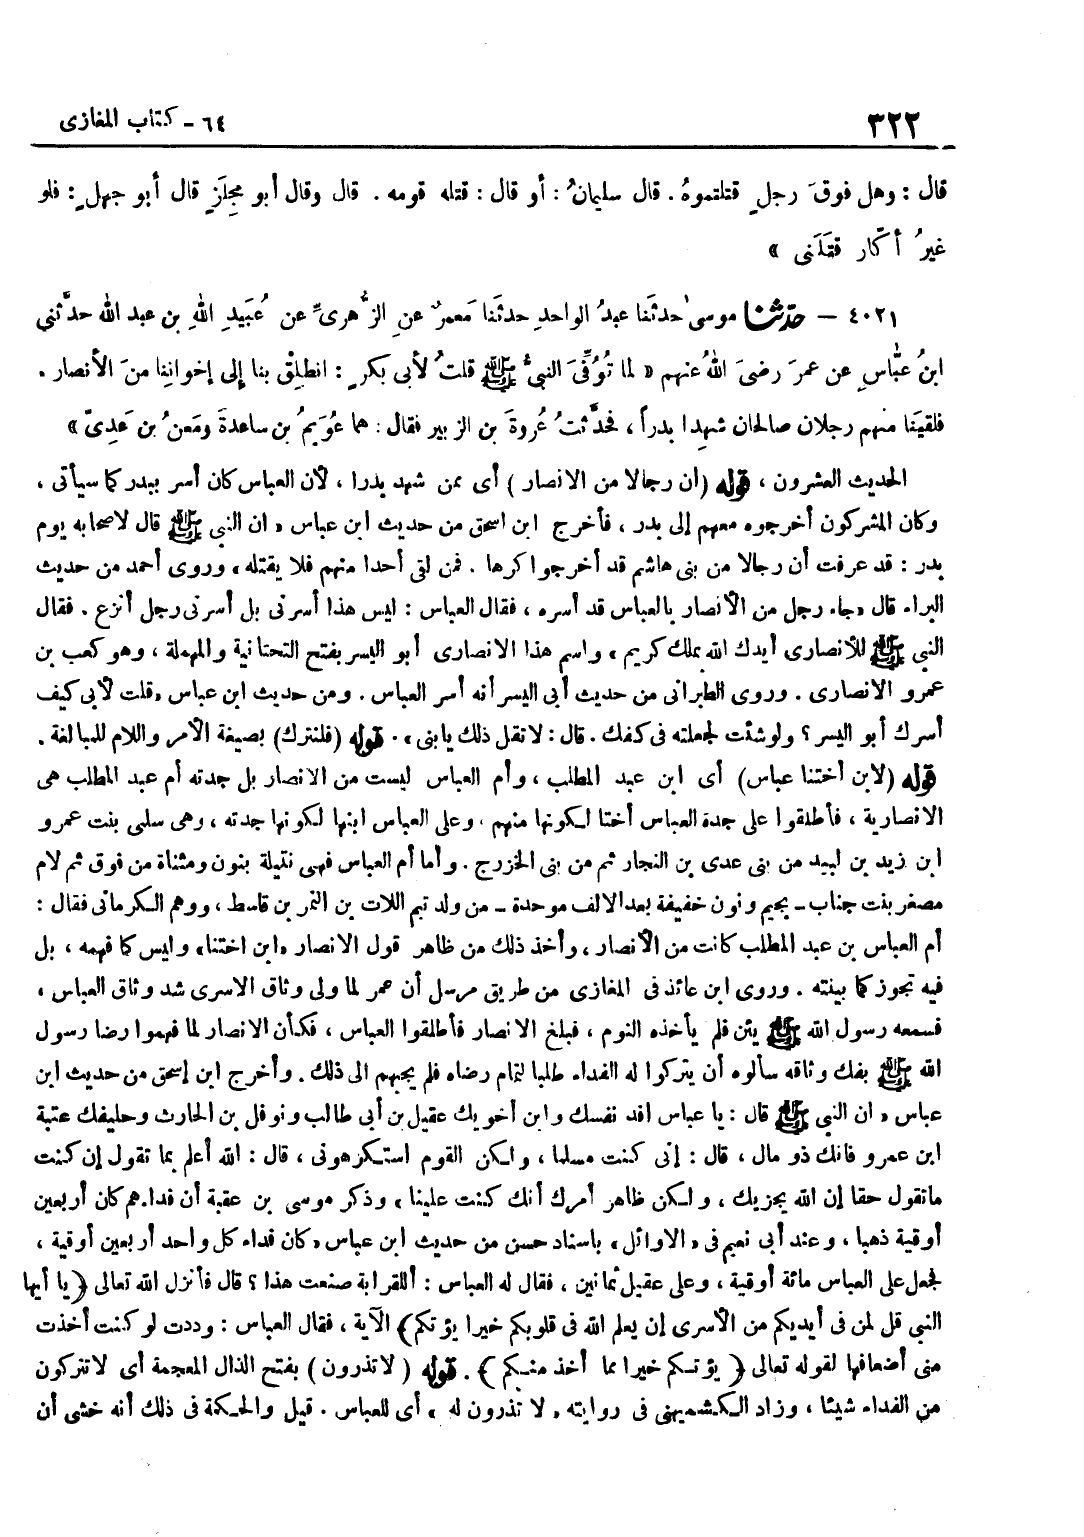 ٣٢٢
٦٤ - كتاب المغازى
قال : وهل فوقَ رجلٍ قتلتموهُ . قال سليمانُ : أو قال : قتله قومه . قال وقال أبو مِجلَزٍ قال أبو جهلٍ : فلو
غيرُ أكّار قتَلَنى »
٤٠٢١ – حدّثنا موسىٰ حدثَنا عبدُ الواحدِ حدثَنا مَعمرٌ عنِ الزُّهرىِّ عن عُبَيدِ اللهِ بن عبد الله حدَّثنى
ابنُ عبّاسٍ عن عمرَ رضىَ اللهُ عنهم « لما تُوُفِّىَ النبىُّ ﷺ قلتُ لأبى بكرٍ : انطلِقْ بنا إلى إخوانِنا منَ الأنصار .
فلقيَنا منهم رجلان صالحان شهِدا بدراً ، فحدَّثتُ عُروةَ بن الزبير فقال : هما عُوَيمُ بن ساعدةَ ومَعنُ بن عَدِىّ »
الحديث العشرون ، قوله (أن رجالا من الانصار ) أى ممن شهد بدرا ، لأن العباس كان أسر ببدر كما سيأتى ،
وكان المشركون أخرجوه معهم إلى بدر ، فأخرج ابن اسحق من حديث ابن عباس « ان النبى ﷺ قال لاصحابه يوم
بدر : قد عرفت أن رجالا من بنى هاشم قد أخرجوا كرها . فمن لقى أحدا منهم فلا يقتله » وروى أحمد من حديث
البراء قال « جاء رجل من الأنصار بالعباس قد أسره ، فقال العباس : ليس هذا أسرنى بل أسرنى رجل أنزع . فقال
النبى ﷺ للأنصارى أيدك الله بملك كريم » واسم هذا الانصارى أبو اليسر بفتح التحتانية والمهملة ، وهو كعب بن
عمرو الانصارى . وروى الطبرانى من حديث أبى اليسر أنه أسر العباس . ومن حديث ابن عباس « قلت لأبى كيف
أسرك أبو اليسر ؟ ولو شئت لجعلته فى كفك . قال : لا تقل ذلك يا بنى » . قوله (فلنترك) بصيغة الأمر واللام للمبالغة .
قوله (لابن أختنا عباس) أى ابن عبد المطلب ، وأم العباس ليست من الانصار بل جدته أم عبد المطلب هى
الانصارية ، فأطلقوا على جدة العباس أختا لكونها منهم ، وعلى العباس ابنها لكونها جدته ، وهى سلمى بنت عمرو
ابن زيد بن لبيد من بنى عدى بن النجار ثم من بنى الخزرج . وأما أم العباس فهى نتيلة بنون ومثناة من فوق ثم لام
مصغر بنت جناب – بجيم ونون خفيفة بعد الالف موحدة – من ولد تيم اللات بن النمر بن قاسط ، ووهم الكرمانى فقال :
أم العباس بن عبد المطلب كانت من الأنصار ، وأخذ ذلك من ظاهر قول الانصار « ابن اختنا » وليس كما فهمه ، بل
فيه تجوز كما بينته . وروى ابن عائذ فى المغازى من طريق مرسل أن عمر لما ولى وثاق الاسرى شد وثاق العباس ،
فسمعه رسول الله ﷺ يئن فلم يأخذه النوم ، فبلغ الانصار فأطلقوا العباس ، فكأن الانصار لما فهموا رضا رسول
الله ﷺ بفك وثاقه سألوه أن يتركوا له الفداء طلبا لتمام رضاه فلم يجبهم الى ذلك . وأخرج ابن إسحق من حديث ابن
عباس « ان النبى ﷺ قال : يا عباس افد نفسك وابن أخويك عقيل بن أبى طالب ونوفل بن الحارث وحليفك عتبة
ابن عمرو فانك ذو مال ، قال : إنى كنت مسلما ، ولكن القوم استكرهونى ، قال : الله أعلم بما تقول إن كنت
ما تقول حقا إن الله يجزيك ، ولكن ظاهر أمرك أنك كنت علينا » وذكر موسى بن عقبة أن فداءهم كان أربعين
أوقية ذهبا ، وعند أبى نعيم فى « الاوائل » باسناد حسن من حديث ابن عباس « كان فداء كل واحد أربعين أوقية ،
فجعل على العباس مائة أوقية ، وعلى عقيل ثمانين ، فقال له العباس : أللقرابة صنعت هذا ؟ قال فأنزل الله تعالى ﴿ يا أيها
النبى قل لمن فى أيديكم من الأسرى إن يعلم الله فى قلوبكم خيرا يؤتكم ﴾ الآية ، فقال العباس : وددت لو كنت أخذت
منى أضعافها لقوله تعالى ﴿ يؤتكم خيرا مما أخذ منكم ﴾ . قوله ( لا تذرون ) بفتح الذال المعجمة أى لا تتركون
من الفداء شيئا ، وزاد الكشميهنى فى روايته « لا تذرون له » أى للعباس . قيل والحكمة فى ذلك أنه خشى أن